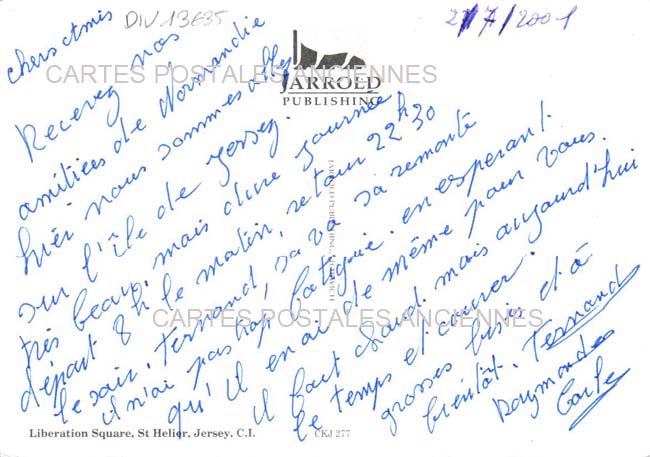 DIV 13635
2/7/2001
CARTES POSTALES ANCIENNES
JARROLD
PUBLISHING
chers Amis
Recevez nos
amitiées de Normandie
hier nous sommes allés
sur l'île de Jersey.
très beau, mais dure journée
départ 8h le matin, retour 22h30
le soir. Fernand, sa va sa remonte
il n'ai pas trop fatigué. en esperant
qu'il en ai de même pour vous.
il fait chaud. mais aujourd'hui
le temps et couver.
grosses bises et à
bientôt. Fernand
Raymonde
CARTES POSTALES ANCIENNES
Liberation Square, St Helier, Jersey, C.I.
CKJ 277